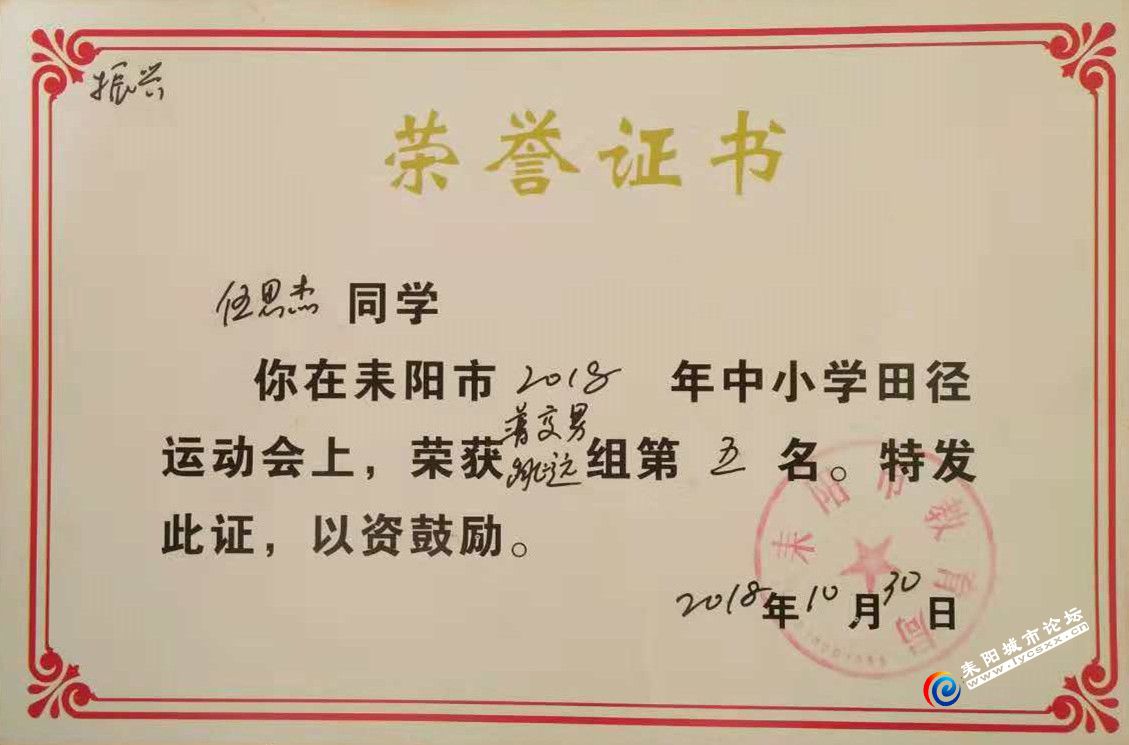 振兴
荣誉证书
伍思杰 同学
你在耒阳市 2018 年中小学田径
普及男
运动会上，荣获 跳远 组第 五 名。特发
此证，以资鼓励。
2018年10月30日
耒阳市教育局
耒阳城市论坛
www.lycsxx.cn